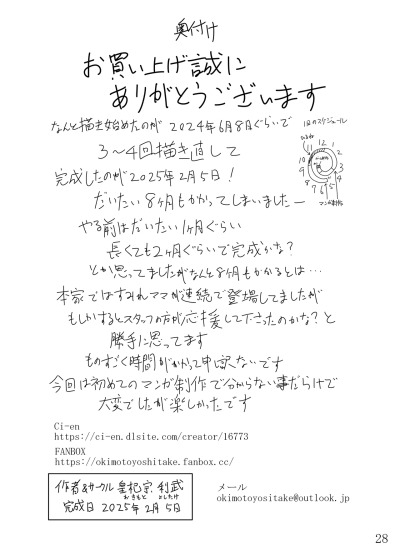 奥付け
お買い上げ誠に
ありがとうございます
なんと描き始めたのが 2024年6月8日ぐらいで
1日のスケジュール
3〜4回描き直して
完成したのが2025年2月5日!
だいたい8ヶ月もかかってしまいましたー
やる前はだいたい1ヶ月ぐらい
長くても2ヶ月ぐらいで完成かな?
とか思ってましたがなんと8ヶ月もかかるとは…
本家ではすみれママが連続で登場してましたが
もしかするとスタッフの方が応援して下さったのかな?と
勝手に思ってます
ものすごく時間がかかって申し訳ないです
今回は初めてのマンガ制作で分からない事だらけで
大変でしたが楽しかったです
Ci-en
https://ci-en.dlsite.com/creator/16773
FANBOX
https://okimotoyoshitake.fanbox.cc/
作者&サークル 皇杞宗 利武
おきもと よしたけ
完成日 2025年2月5日
メール
okimotoyositake@outlook.jp
28